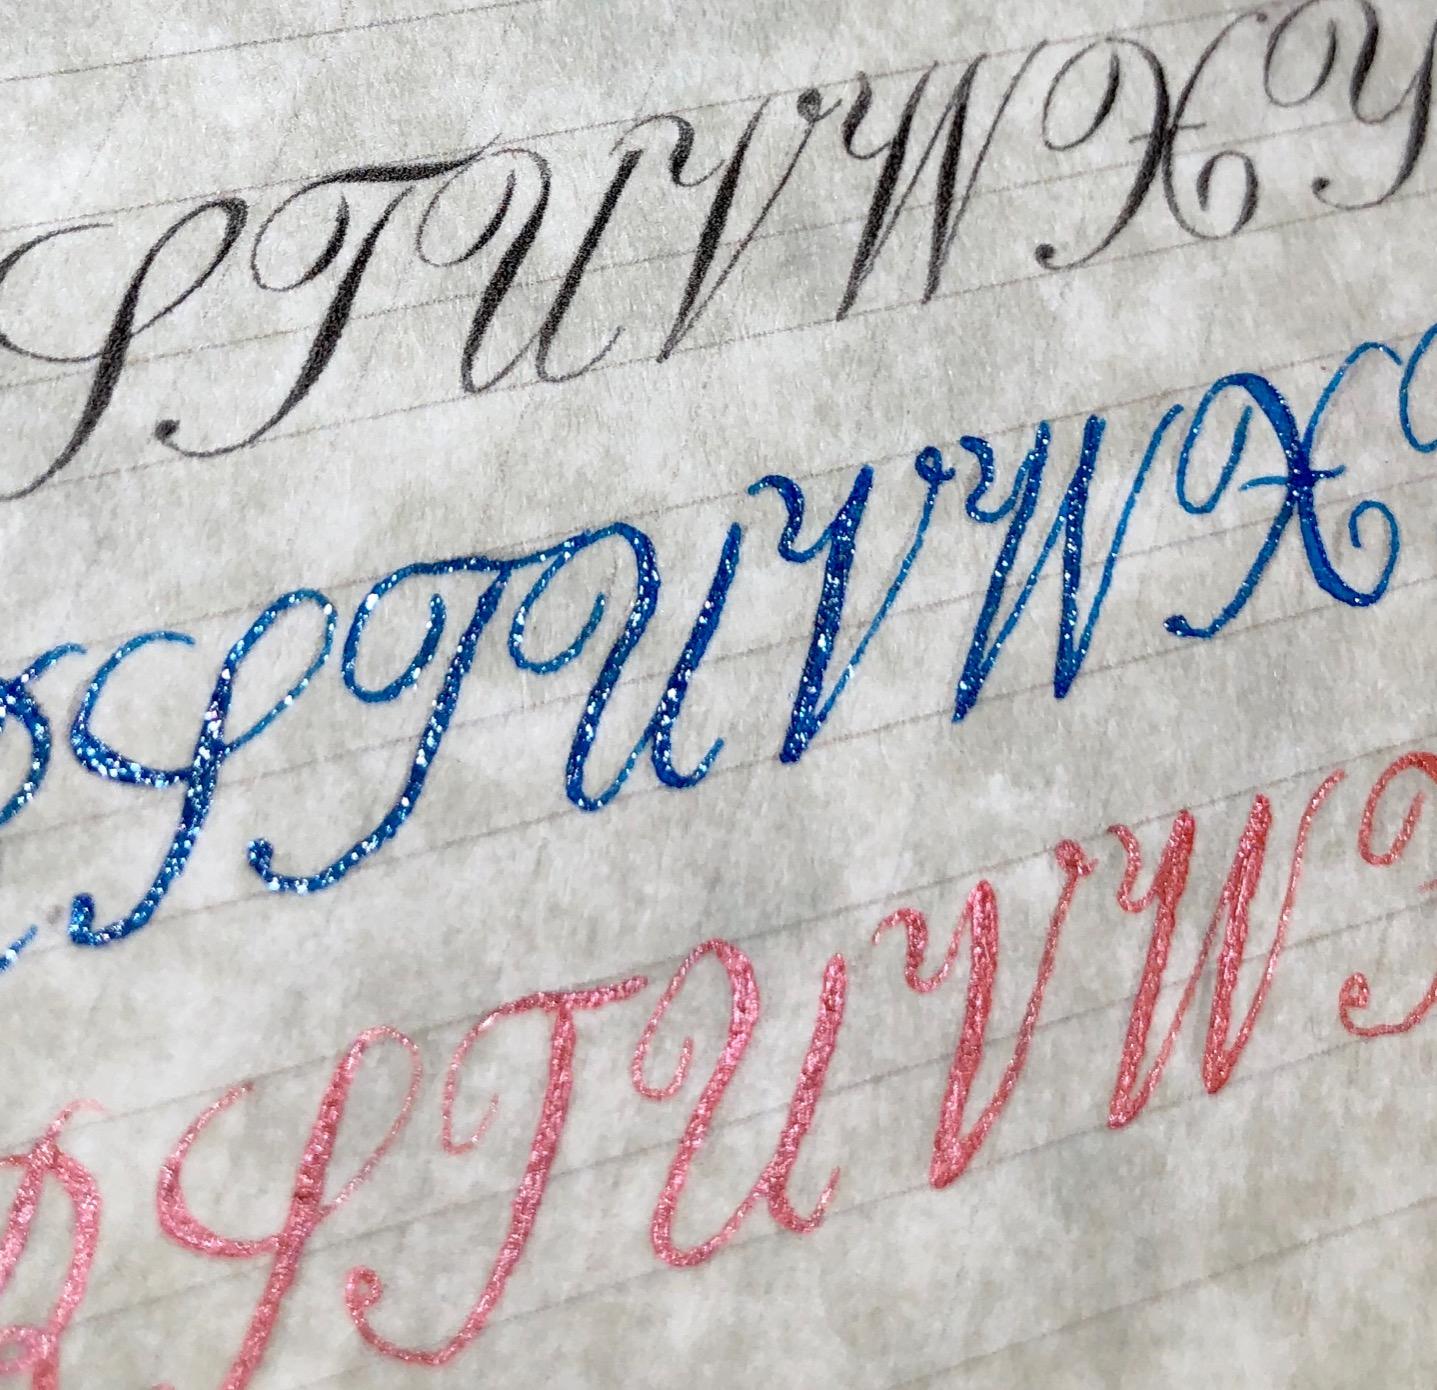 S T U V W X Y
R S T U V W X
R S T U V W X